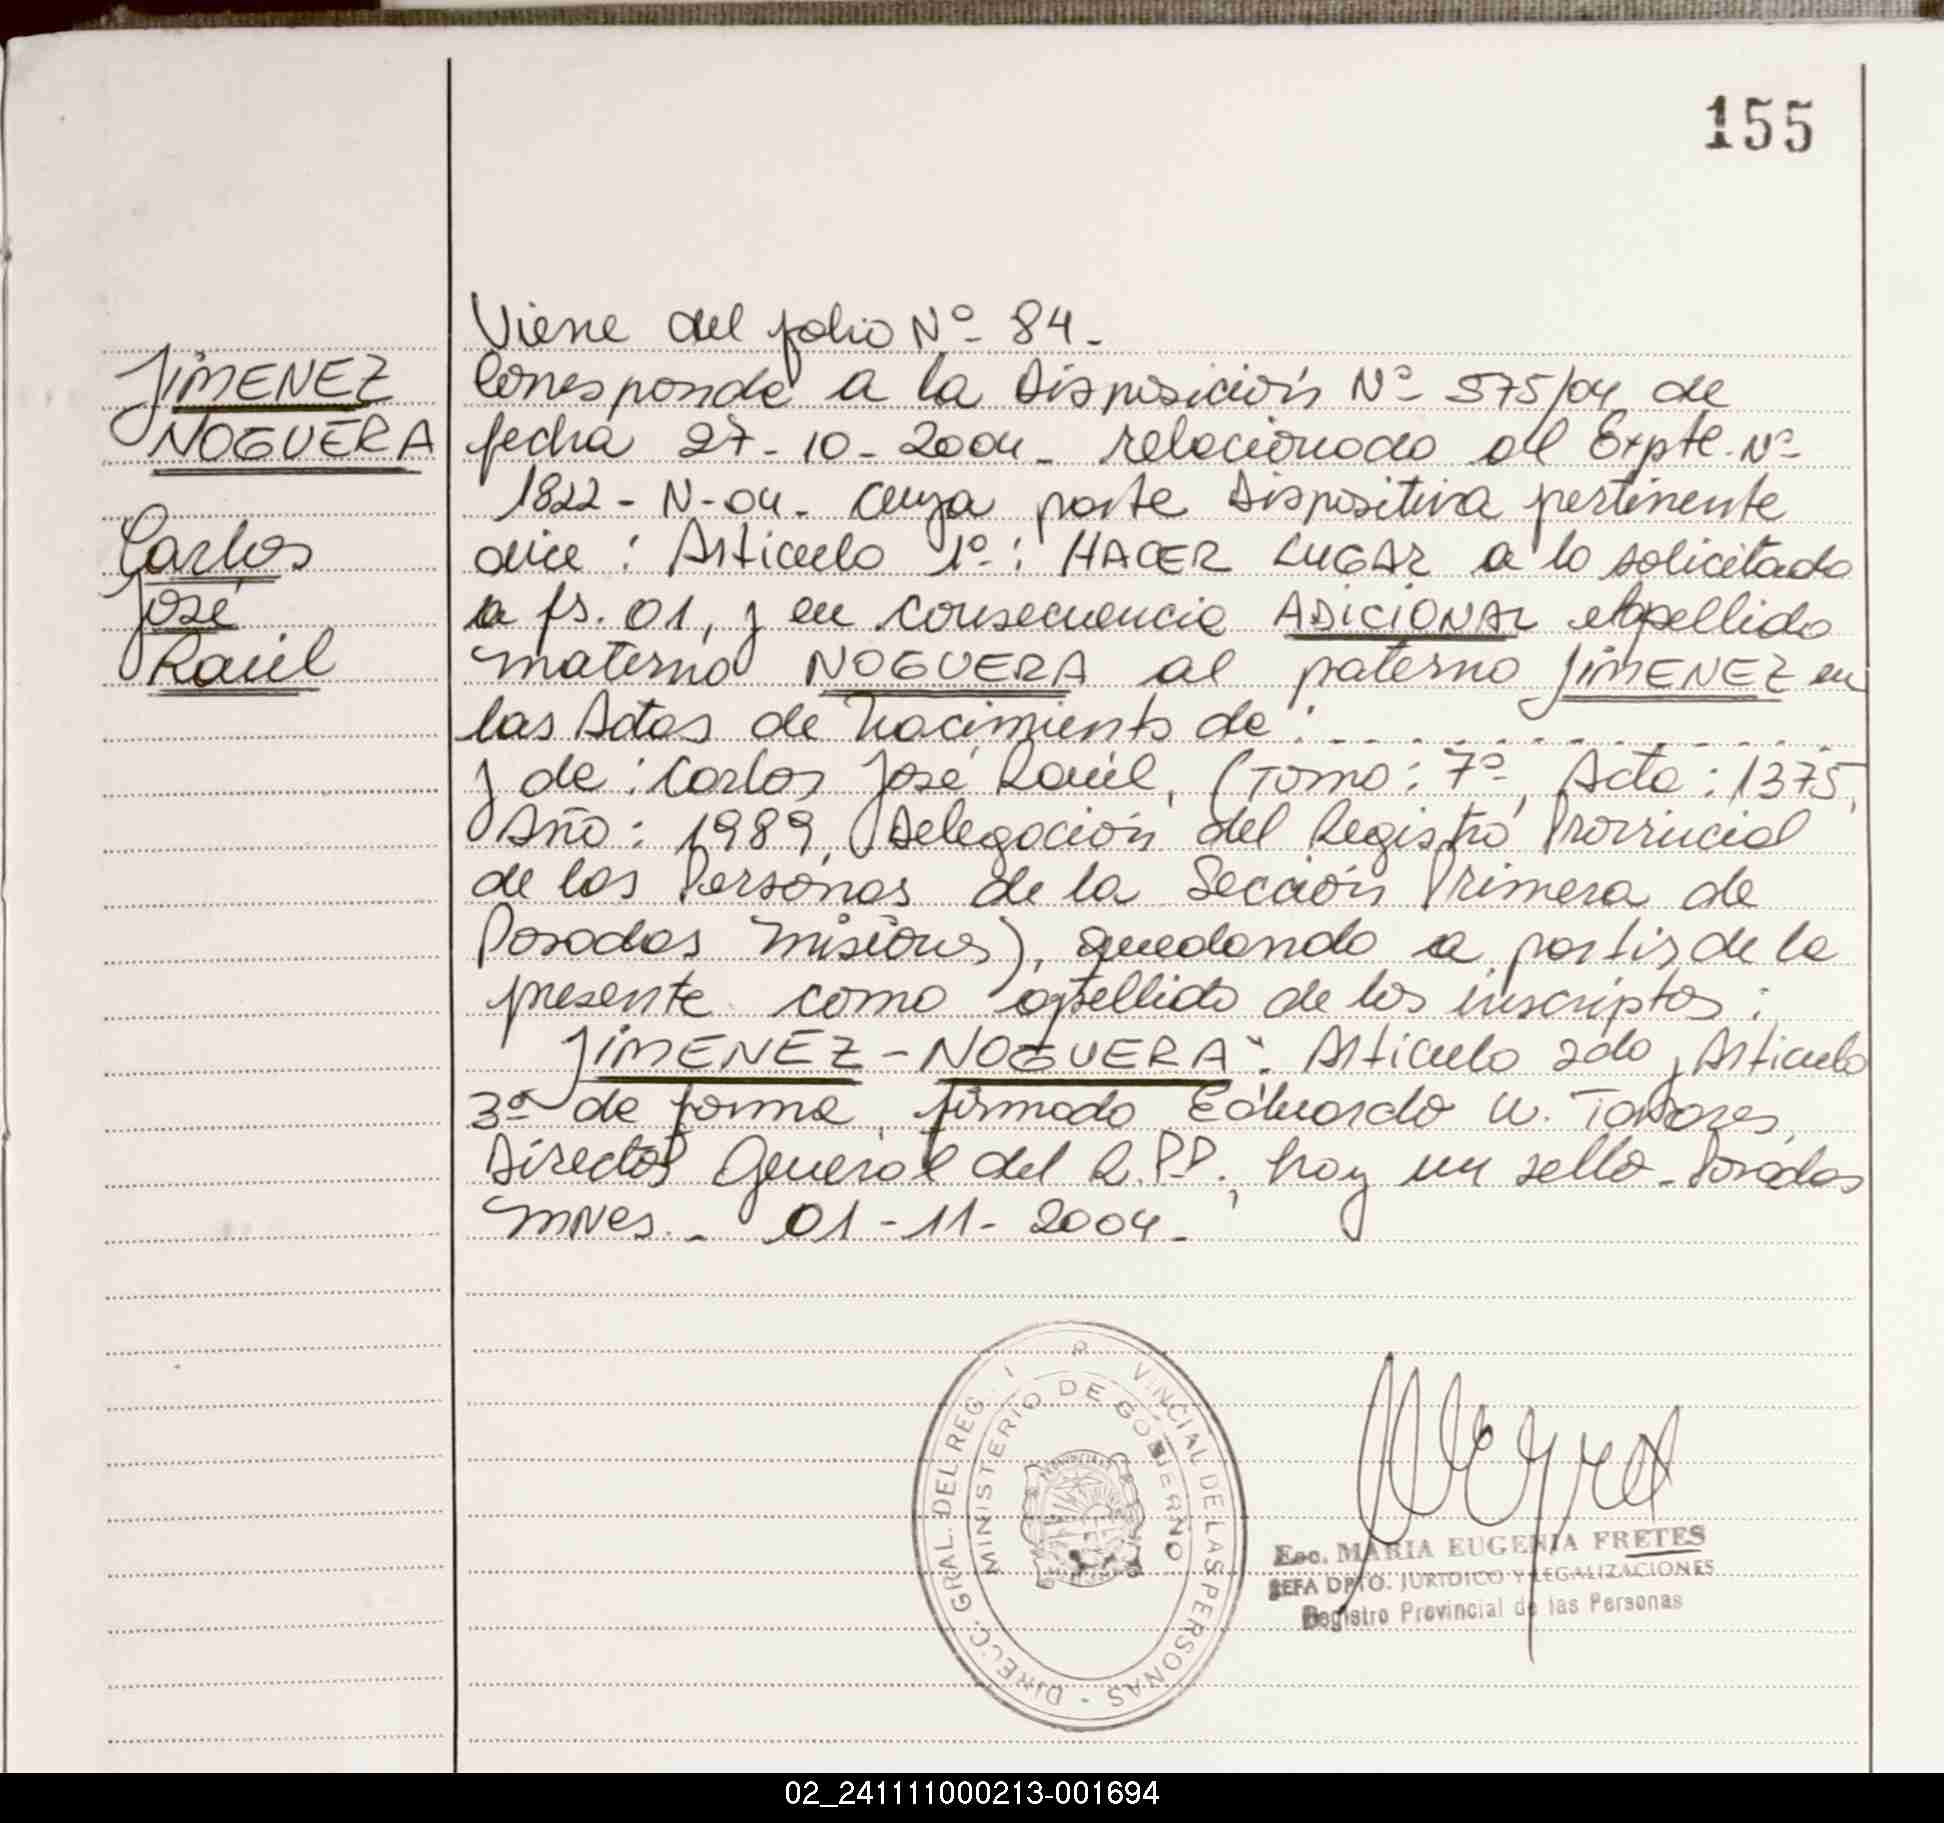 155
JIMENEZ
NOGUERA
Carlos
José
Raúl
Viene del folio Nº 84.-
Corresponde a la Disposición Nº 575/04 de
fecha 27-10-2004- relacionado al Expte. Nº
1822-N-04. cuya parte Dispositiva pertinente
dice: Artículo 1º: HACER LUGAR a lo solicitado
a fs. 01, y en consecuencia ADICIONAR el Apellido
materno NOGUERA al paterno JIMENEZ en
las Actas de Nacimiento de: - - - - - - - - - -
y de: Carlos José Raúl, (Tomo: 7º, Acta: 1375,
Año: 1989, Delegación del Registro Provincial
de las Personas de la Sección Primera de
Posadas Misiones), quedando a partir de la
presente como apellido de los inscriptos:
JIMENEZ-NOGUERA". Artículo 2do y Artículo
3º de forma, firmado Eduardo W. Tavares,
Director General del R.P.P.; hay un sello-Posadas
Mnes.- 01-11-2004.-
DIRECC. GRAL. DEL REG. VINCIAL DE LAS PERSONAS -
MINISTERIO DE GOBIERNO
Esc. MARIA EUGENIA FRETES
JEFA DPTO. JURIDICO Y LEGALIZACIONES
Registro Provincial de las Personas
02_241111000213-001694